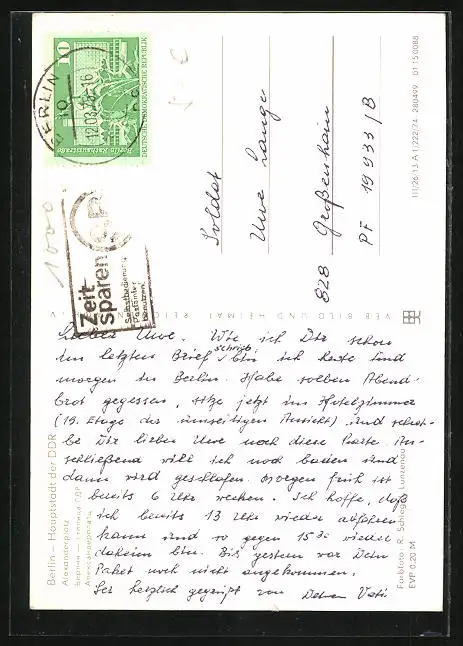 10
DEUTSCHE DEMOKRATISCHE REPUBLIK
BERLIN
12.03.76-16
Zeit
sparen
Selbstbedienung
Postämter
benutzen!
1000
Soldat
Uwe Lange
828 Großenhain
PF 19933/B
III/26/13 A 1/222/74 280499 01 15 0088
VEB BILD UND HEIMAT REICH
Lieber Uwe. Wie ich Dir schon
im letzten Brief schrieb bin ich heute und
morgen in Berlin. Habe soeben Abend-
brot gegessen, sitze jetzt im Hotelzimmer
(19. Etage der umseitigen Ansicht) und schrei-
be Dir lieben Uwe noch diese Karte. An-
schließend will ich noch baden und
dann wird geschlafen. Morgen früh ist
bereits 6 Uhr wecken. Ich hoffe, daß
ich bereits 13 Uhr wieder abfahren
kann und so gegen 15³⁰ wieder
daheim bin. Bis gestern war Dein
Paket noch nicht angekommen.
Sei herzlich gegrüßt von Deinem Vati
Berlin – Hauptstadt der DDR
Alexanderplatz
Берлин — столица ГДР
Александерплац
Farbfoto: R. Schlegel, Lunzenau
EVP 0,20 M